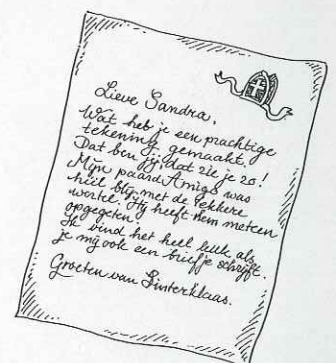 Lieve Sandra,
Wat heb je een prachtige
tekening gemaakt.
Dat ben jij, dat zie je zo!
Mijn paard Amigo was
héél blij met de lekkere
wortel. Hij heeft hem meteen
opgegeten.
Ik vind het heel leuk als
je mij ook een briefje schrijft.
Groeten van Sinterklaas.